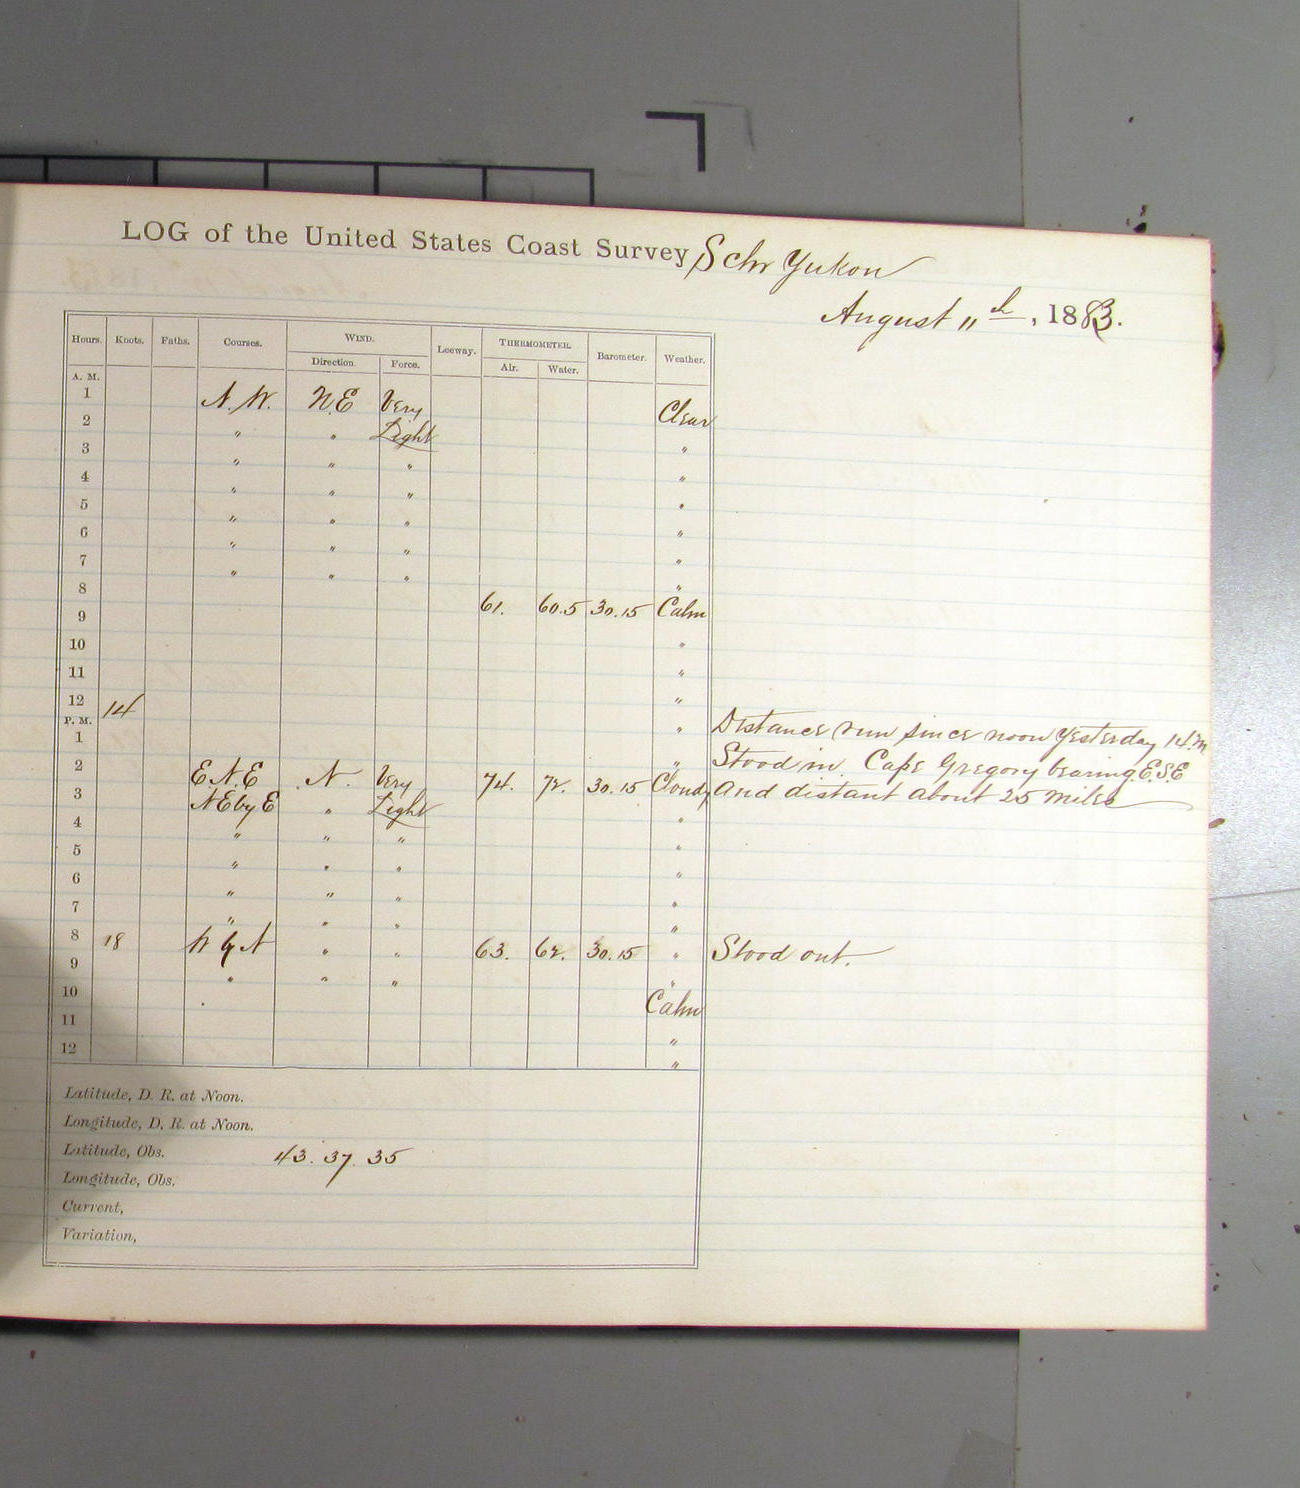 LOG of the United States Coast Survey Schr Yukon
August 11th, 1883.
Hours. Knots. Faths. Courses. WIND. Direction. Force. Leeway. THERMOMETER. Air. Water. Barometer. Weather.
A. M.
1 N.W. N.E Very Clear
2 " " Light "
3 " " " "
4 " " " "
5 " " " "
6 " " " "
7 " " " "
8 61. 60.5 30.15 Calm
9
10 "
11 "
12 14 "
P. M. " Distance run since noon Yesterday 14 m
1 " Stood in Cape Gregory bearing E.S.E
2 E.N.E N. Very 74. 72. 30.15 Cloudy And distant about 25 miles
3 NE by E " Light "
4 " " " "
5 " " " "
6 " " " "
7 " " " "
8 18 W by N " " 63. 62. 30.15 " Stood out.
9 " " " "
10 Calm
11 "
12 "
Latitude, D. R. at Noon.
Longitude, D. R. at Noon.
Latitude, Obs. 43. 37. 35
Longitude, Obs.
Current,
Variation,